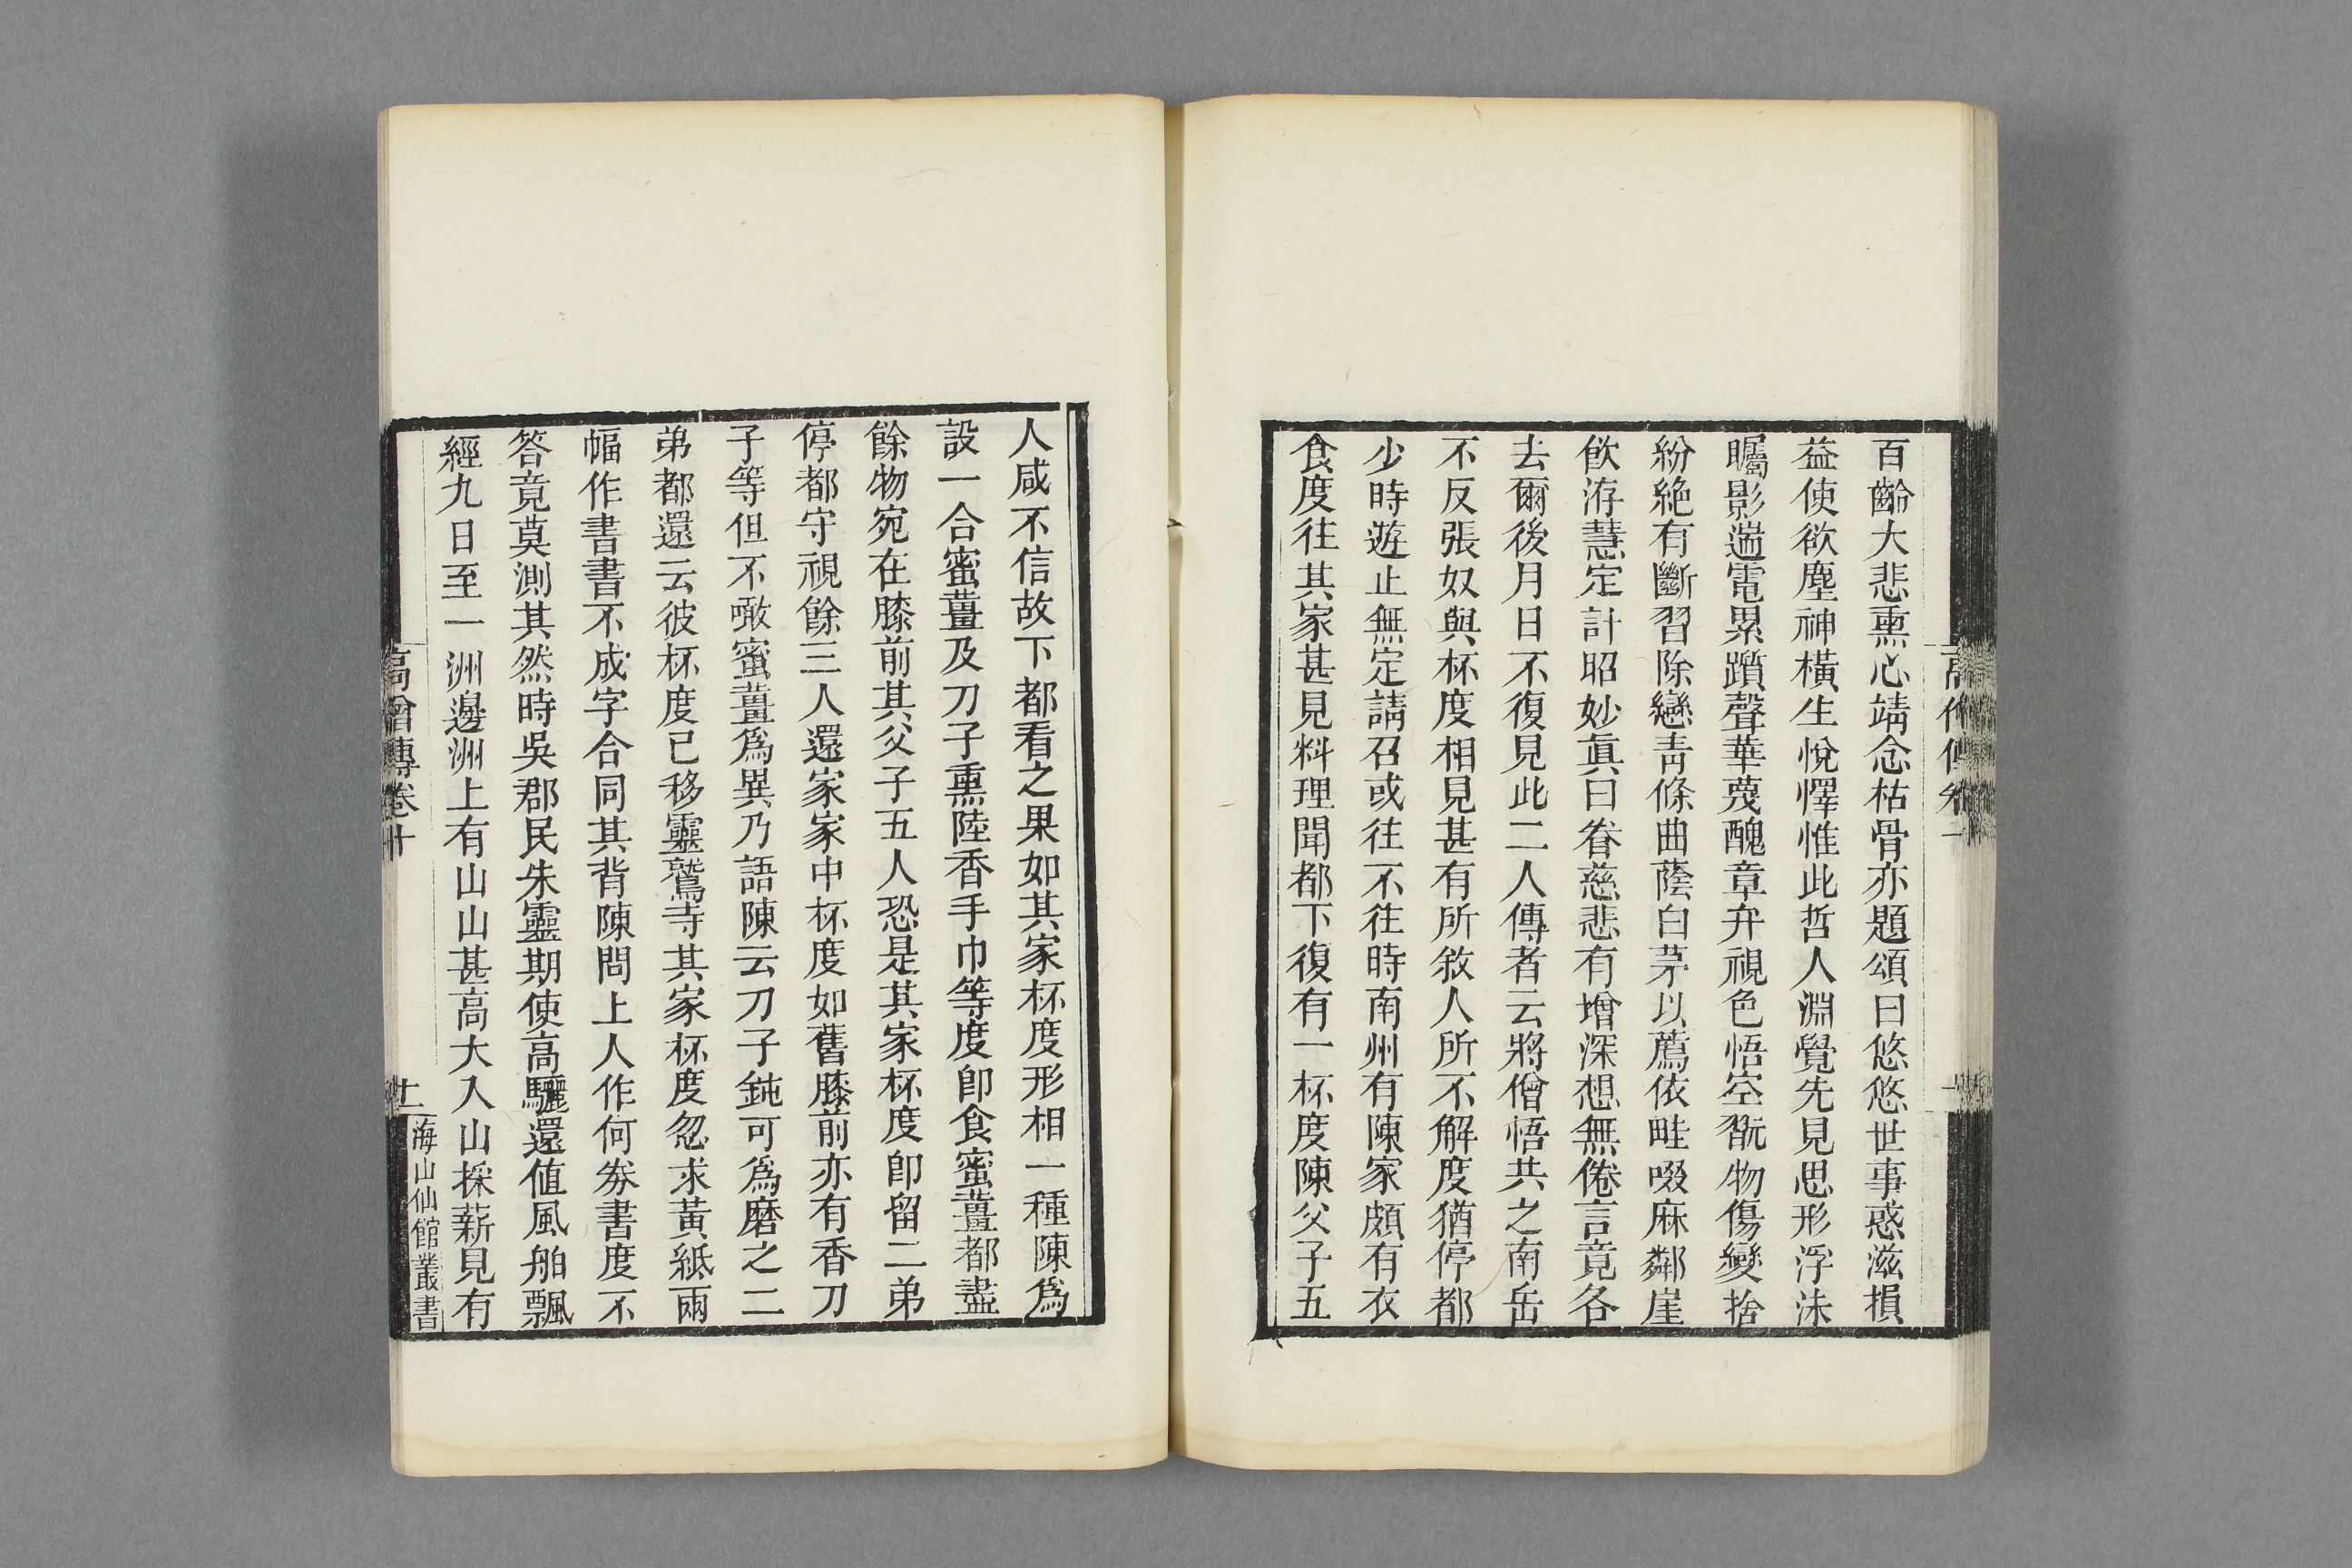 百齡大悲熏心靖念枯骨亦題頌曰悠悠世事惑滋損
益使欲塵神橫生悅懌惟此哲人淵覺先見思形浮沫
矚影遄電累躓聲華蔑醜章弁視色悟空翫物傷變捨
紛絕有斷習除戀靑條曲蔭白茅以薦依畦啜麻鄰崖
飮洊慧定計昭妙眞曰眷慈悲有增深想無倦言竟各
去爾後月日不復見此二人傳者云將僧悟共之南岳
不反張奴與杯度相見甚有所敘人所不解度猶停都
少時遊止無定請召或往不往時南州有陳家頗有衣
食度往其家甚見料理聞都下復有一杯度陳父子五
人咸不信故下都看之果如其家杯度形相一種陳爲
設一合蜜薑及刀子熏陸香手巾等度卽食蜜薑都盡
餘物宛在膝前其父子五人恐是其家杯度卽留二弟
停都守視餘三人還家家中杯度如舊膝前亦有香刀
子等但不噉蜜薑爲異乃語陳云刀子鈍可爲磨之二
弟都還云彼杯度已移靈鷲寺其家杯度忽求黃紙兩
幅作書書不成字合同其背陳問上人作何券書度不
答竟莫測其然時吳郡民朱靈期使高驪還値風舶飄
經九日至一洲邊洲上有山山甚高大入山採薪見有
高僧傳卷十
十二
海山仙館叢書